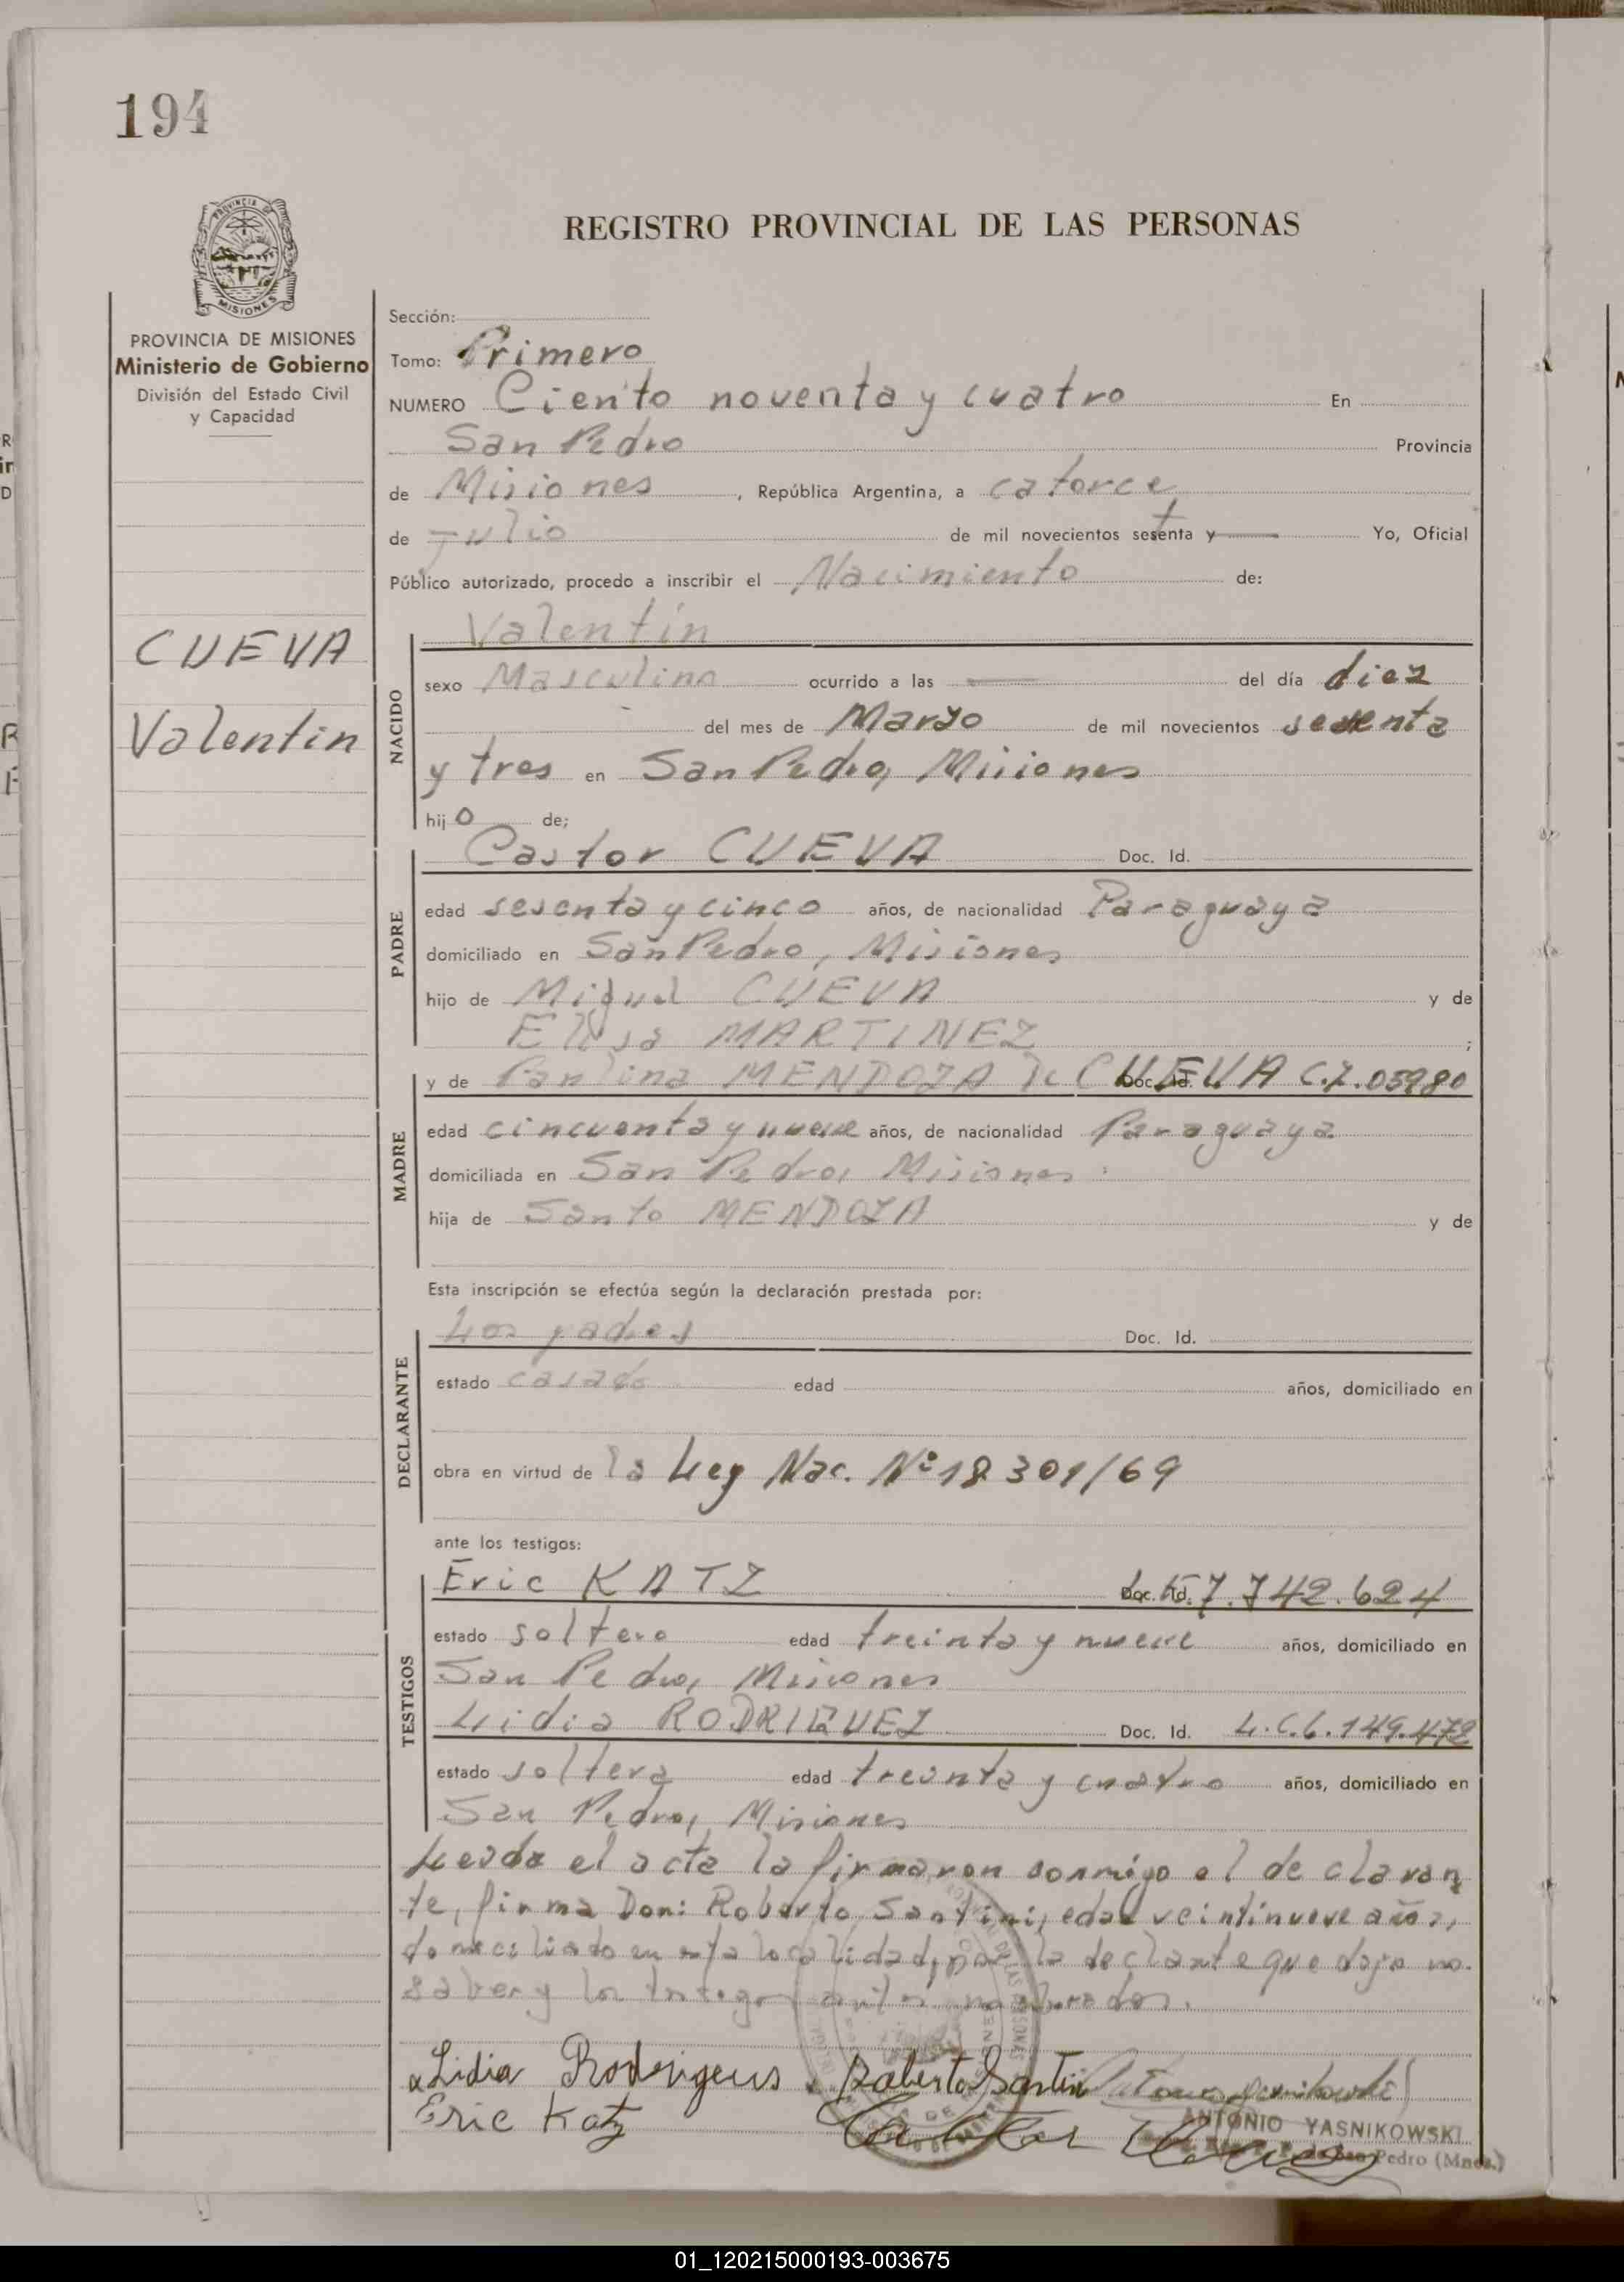 194
PROVINCIA DE MISIONES
REGISTRO PROVINCIAL DE LAS PERSONAS
PROVINCIA DE MISIONES
Ministerio de Gobierno
División del Estado Civil
y Capacidad
CUEVA
Valentin
Sección:
Tomo: Primero
NUMERO Ciento noventa y cuatro En
San Pedro Provincia
de Misiones, República Argentina, a catorce
de Julio de mil novecientos setenta y — Yo, Oficial
Público autorizado, procedo a inscribir el Nacimiento de:
NACIDO
Valentín
sexo Masculino ocurrido a las — del día diez
del mes de Marzo de mil novecientos sesenta
y tres en San Pedro, Misiones
hijo de;
PADRE
Castor CUEVA Doc. Id.
edad sesenta y cinco años, de nacionalidad Paraguaya
domiciliado en San Pedro, Misiones
hijo de Miguel CUEVA y de
Elisa MARTINEZ ;
MADRE
y de Paulina MENDOZA de CUEVA Doc. Id. C.I. 05980
edad cincuenta y nueve años, de nacionalidad Paraguaya
domiciliada en San Pedro, Misiones
hija de Santo MENDOZA y de
Esta inscripción se efectúa según la declaración prestada por:
DECLARANTE
Los padres Doc. Id.
estado casado edad años, domiciliado en
obra en virtud de la Ley Nac. Nº 18301/69
ante los testigos:
TESTIGOS
Eric KATZ Doc. Id. 7.742.624
estado soltero edad treinta y nueve años, domiciliado en
San Pedro, Misiones
Lidia RODRIGUEZ Doc. Id. L.C. 6.149.472
estado soltera edad treinta y cuatro años, domiciliado en
San Pedro, Misiones
Leida el acta la firmaron conmigo el declaran
te, firma Don: Roberto Santini, edad veintinueve años,
domiciliado en esta localidad, por la declante que dojo no
saber y los testigos antes nombrados.
Lidia Rodrigeus Roberto Santini
Eric Katz
ANTONIO YASNIKOWSKI
San Pedro (Mnes.)
01_120215000193-003675